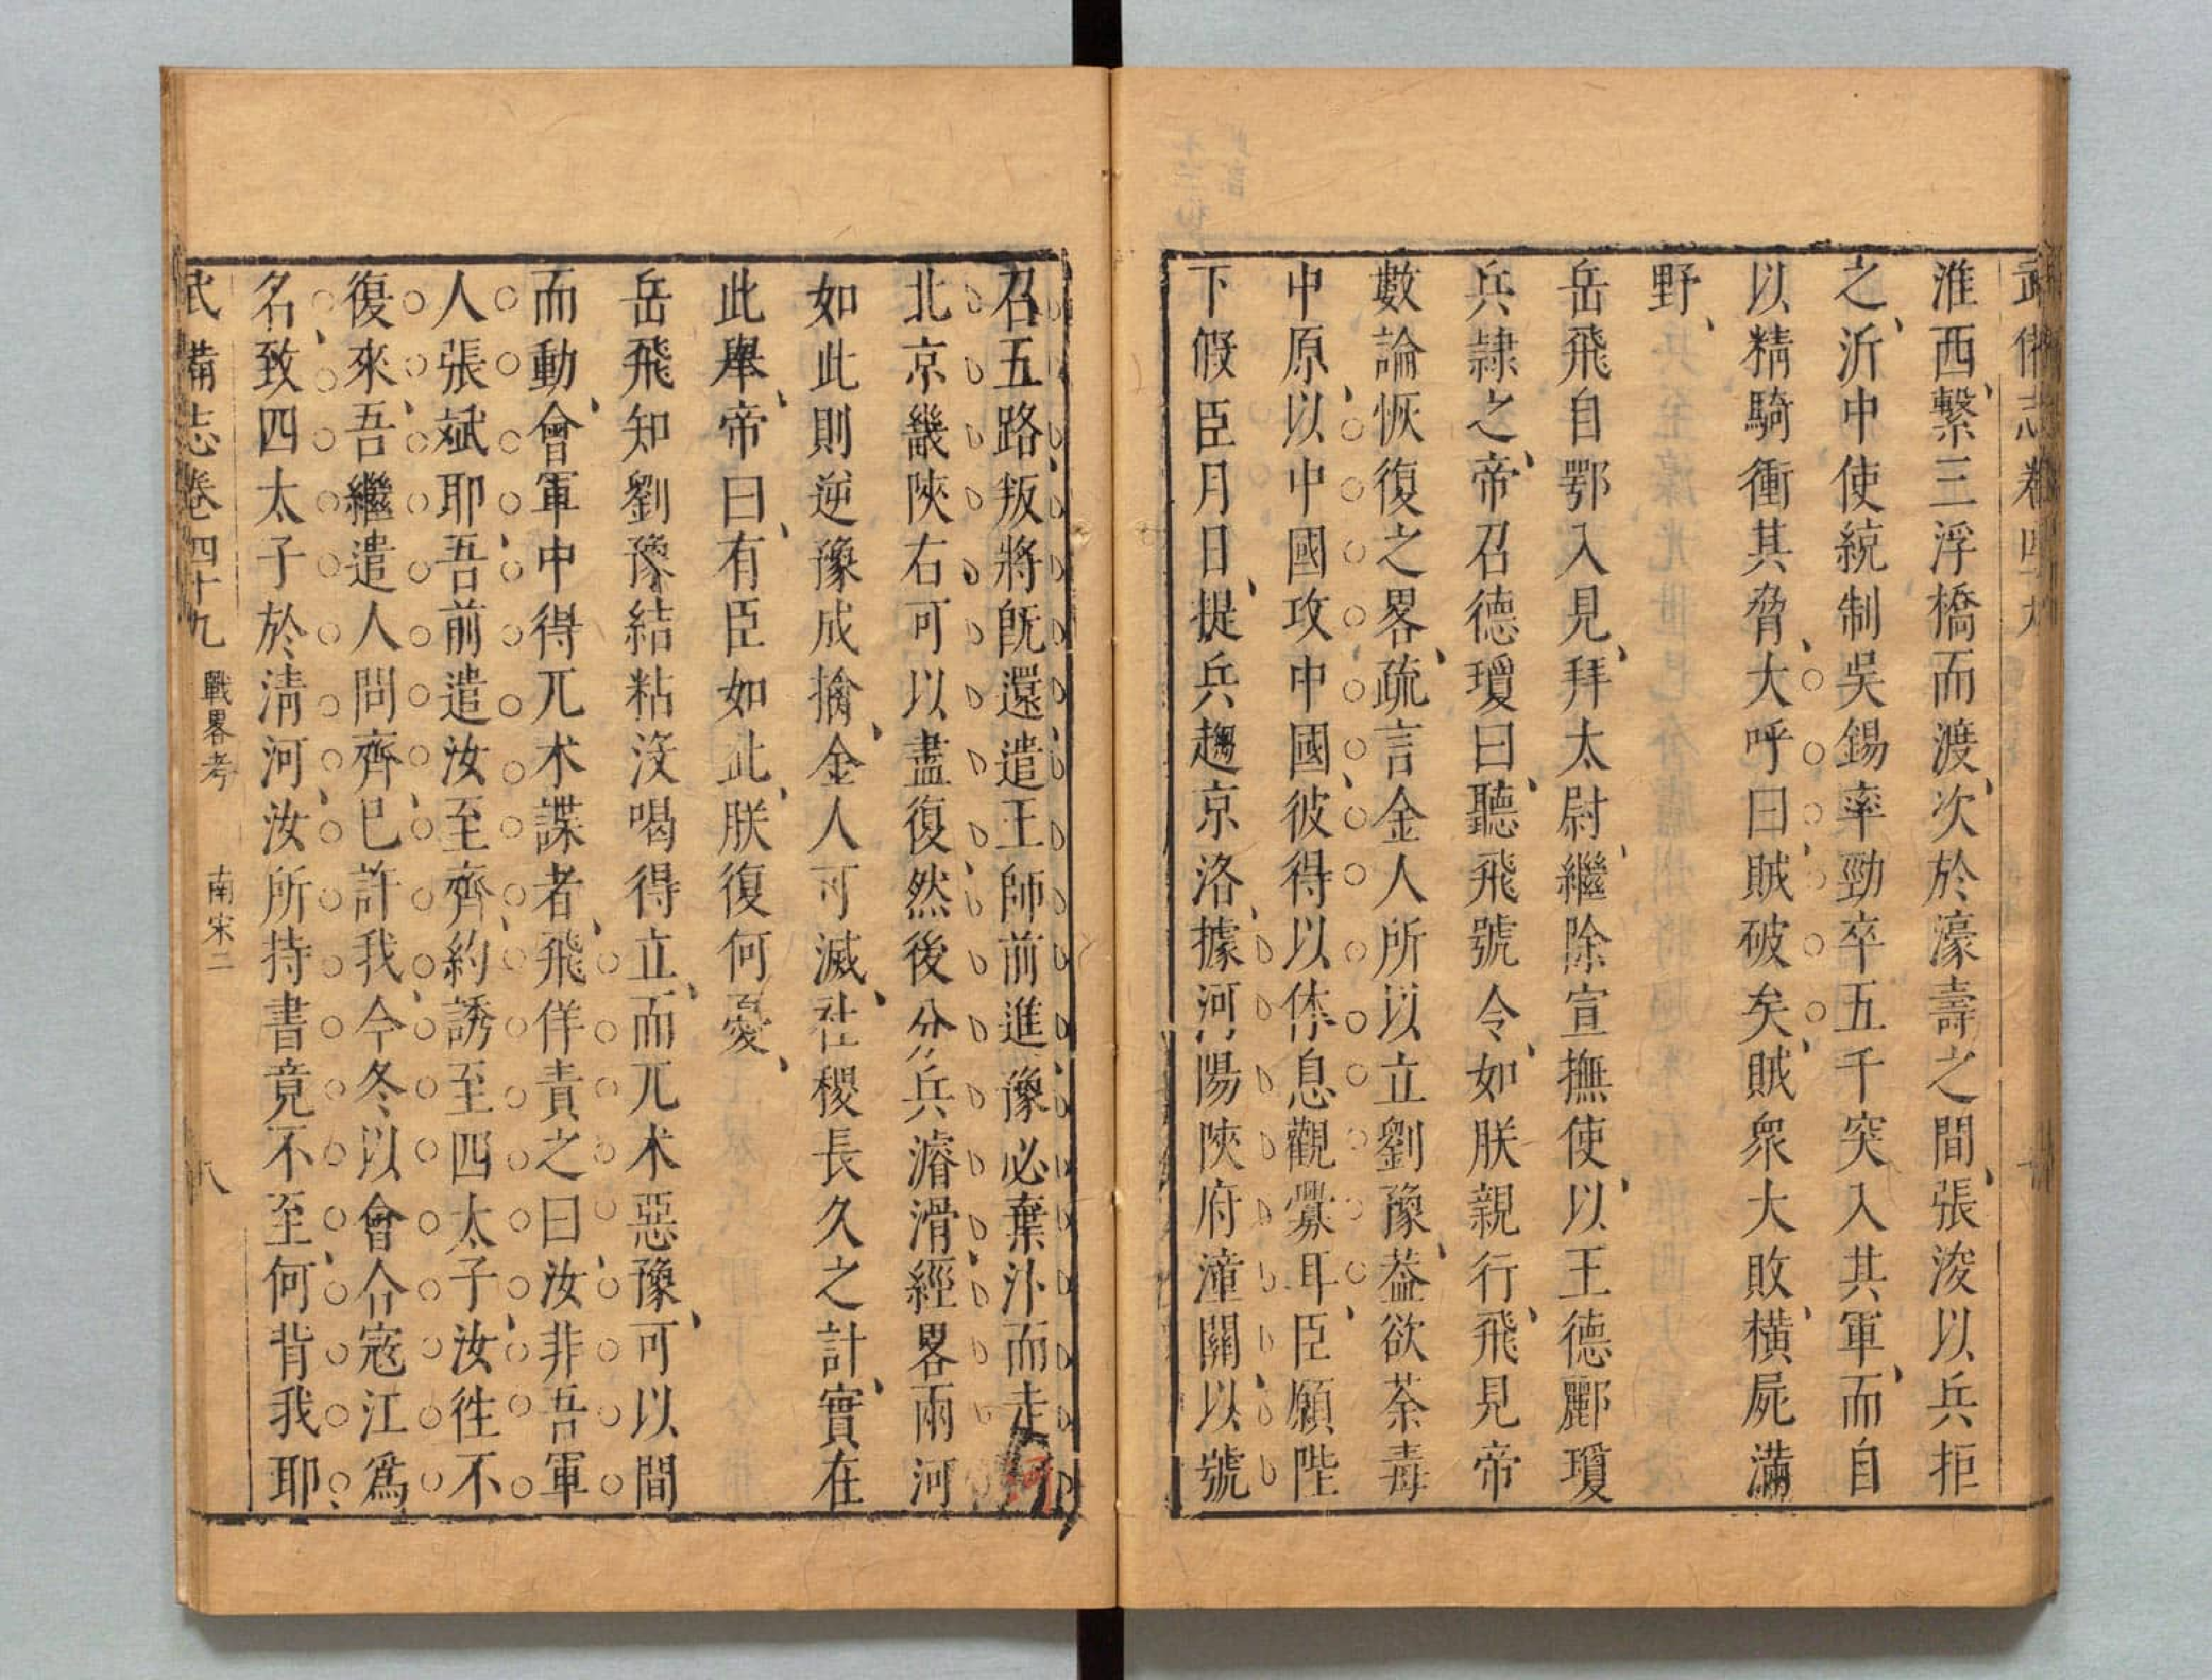 武備志卷四十九
淮西、繫三浮橋而渡、次於濠壽之間、張浚以兵拒
之、沂中使統制吳錫率勁卒五千突入其軍、而自
以精騎衝其脅、大呼曰、賊破矣、賊衆大敗、橫屍滿
野、
岳飛自鄂入見、拜太尉、繼除宣撫使、以王德酈瓊
兵隷之、帝召德瓊曰、聽飛號令、如朕親行、飛見帝
數論恢復之畧、疏言金人所以立劉豫、葢欲荼毒
中原、以中國攻中國、彼得以休息觀釁耳、臣願陛
下假臣月日、提兵趨京洛、據河陽陝府潼關、以號
召五路叛將、旣還、遣王師前進、豫必棄汴而走河
北、京畿陝右可以盡復、然後分兵濬滑、經畧兩河
如此則逆豫成擒、金人可滅、社稷長久之計、實在
此舉、帝曰、有臣如此、朕復何憂、
岳飛知劉豫結粘沒喝得立、而兀术惡豫、可以間
而動、會軍中得兀术諜者、飛佯責之曰、汝非吾軍
人張斌耶、吾前遣汝至齊、約誘至四太子、汝徃不
復來、吾繼遣人問齊、已許我、今冬以會合寇江爲
名、致四太子於淸河、汝所持書竟不至、何背我耶、
武備志卷四十九 戰畧考 南宋二 八